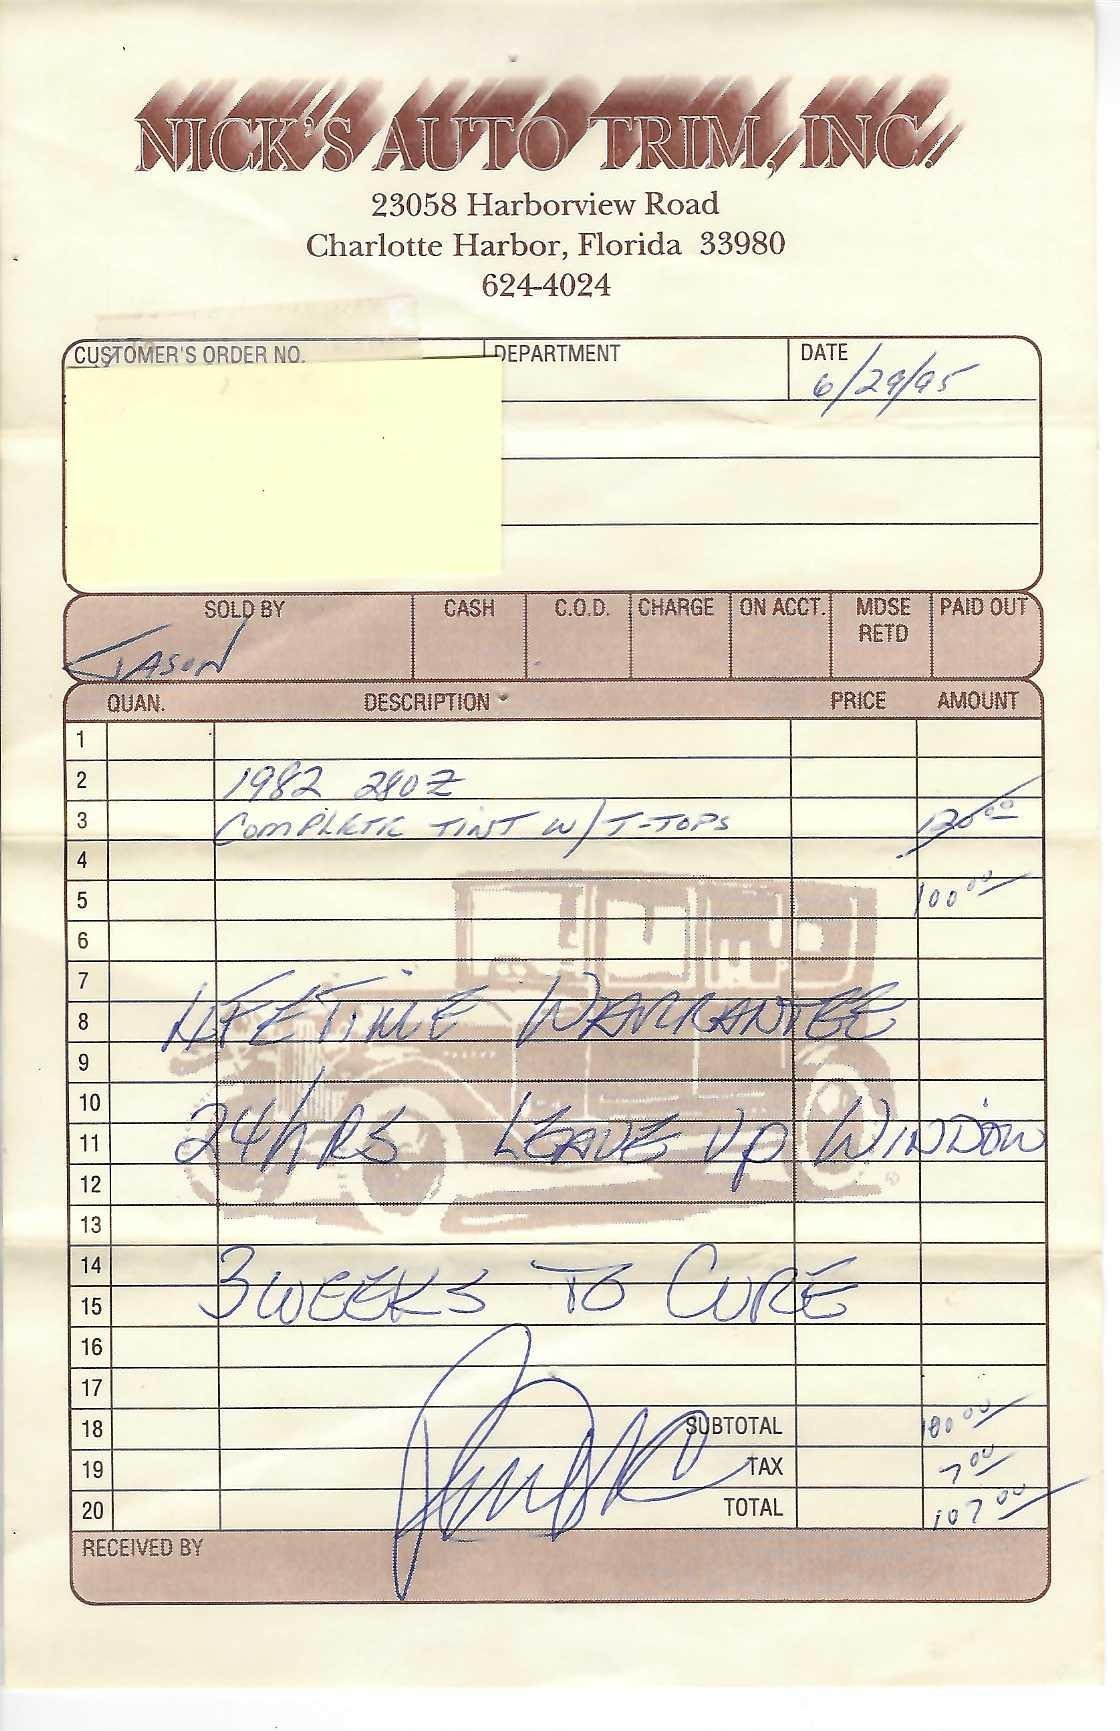 NICK'S AUTO TRIM, INC.
23058 Harborview Road
Charlotte Harbor, Florida 33980
624-4024
CUSTOMER'S ORDER NO. DEPARTMENT DATE
6/29/95
SOLD BY CASH C.O.D. CHARGE ON ACCT. MDSE RETD PAID OUT
JASON
QUAN. DESCRIPTION PRICE AMOUNT
1
2 1982 280Z
3 COMPLETE TINT W/T-TOPS 120.00
4
5 100.00
6
7
8 LIFETIME WARRANTEE
9
10
11 24HRS LEAVE UP WINDOW
12
13
14
15 3 WEEKS TO CURE
16
17
18 SUBTOTAL 100.00
19 TAX 7.00
20 TOTAL 107.00
RECEIVED BY